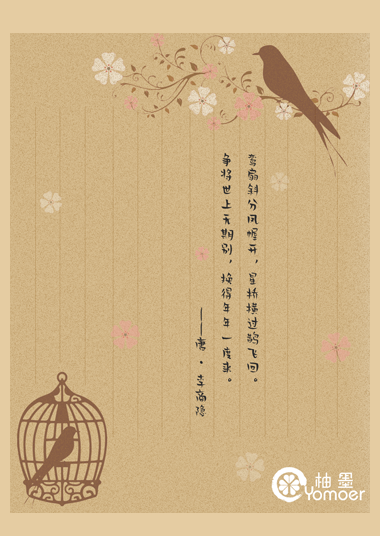 鸾扇斜分凤幄开，星桥横过鹊飞回。
争将世上无期别，换得年年一度来。
——唐·李商隐
柚墨
Yomoer